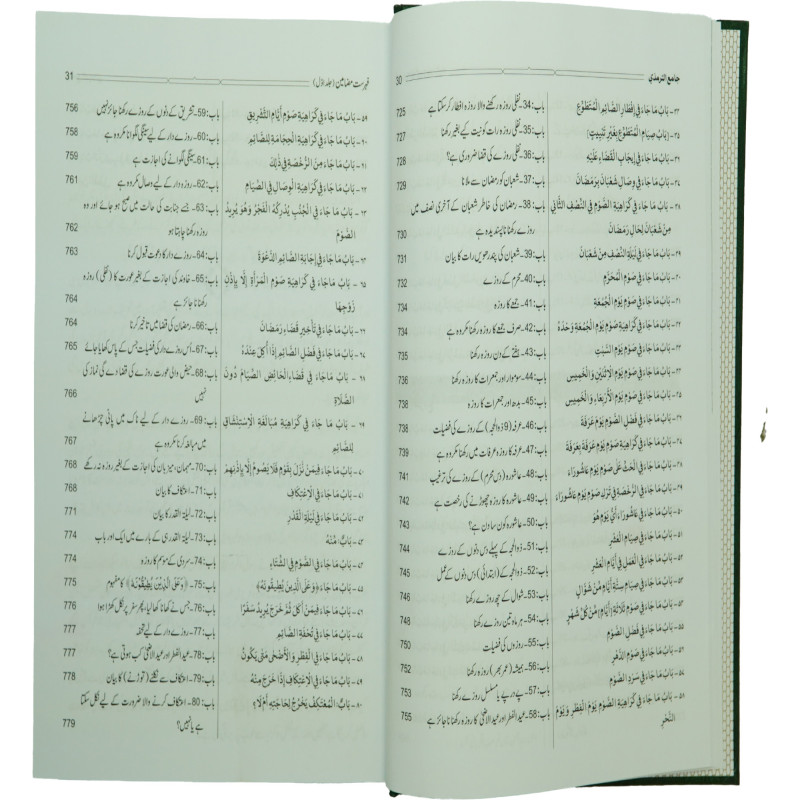 جامع الترمذي 30
۳۴ - بَابُ مَا جَاءَ فِي إِفْطَارِ الصَّائِمِ الْمُتَطَوِّعِ
۳۵ - [بَابُ] صِيَامِ الْمُتَطَوِّعِ بِغَيْرِ تَبْيِيتٍ
۳۶ - بَابُ مَا جَاءَ فِي إِيجَابِ الْقَضَاءِ عَلَيْهِ
۳۷ - بَابُ مَا جَاءَ فِي وِصَالِ شَعْبَانَ بِرَمَضَانَ
۳۸ - بَابُ مَا جَاءَ فِي كَرَاهِيَةِ الصَّوْمِ فِي النِّصْفِ الثَّانِي
مِنْ شَعْبَانَ لِحَالِ رَمَضَانَ
۳۹ - بَابُ مَا جَاءَ فِي لَيْلَةِ النِّصْفِ مِنْ شَعْبَانَ
۴۰ - بَابُ مَا جَاءَ فِي صَوْمِ الْمُحَرَّمِ
۴۱ - بَابُ مَا جَاءَ فِي صَوْمِ يَوْمِ الْجُمُعَةِ
۴۲ - بَابُ مَا جَاءَ فِي كَرَاهِيَةِ صَوْمِ يَوْمِ الْجُمُعَةِ وَحْدَهُ
۴۳ - بَابُ مَا جَاءَ فِي صَوْمِ يَوْمِ السَّبْتِ
۴۴ - بَابُ مَا جَاءَ فِي صَوْمِ يَوْمِ الْاِثْنَيْنِ وَالْخَمِيسِ
۴۵ - بَابُ مَا جَاءَ فِي صَوْمِ يَوْمِ الْأَرْبِعَاءِ وَالْخَمِيسِ
۴۶ - بَابُ مَا جَاءَ فِي فَضْلِ الصَّوْمِ يَوْمَ عَرَفَةَ
۴۷ - بَابُ مَا جَاءَ فِي كَرَاهِيَةِ صَوْمِ يَوْمِ عَرَفَةَ بِعَرَفَةَ
۴۸ - بَابُ مَا جَاءَ فِي الْحَثِّ عَلَى صَوْمِ يَوْمِ عَاشُورَاءَ
۴۹ - بَابُ مَا جَاءَ فِي الرُّخْصَةِ فِي تَرْكِ صَوْمِ يَوْمِ عَاشُورَاءَ
۵۰ - بَابُ مَا جَاءَ فِي عَاشُورَاءَ أَيُّ يَوْمٍ هُوَ
۵۱ - بَابُ مَا جَاءَ فِي صِيَامِ الْعَشْرِ
۵۲ - بَابُ مَا جَاءَ فِي الْعَمَلِ فِي أَيَّامِ الْعَشْرِ
۵۳ - بَابُ مَا جَاءَ فِي صِيَامِ سِتَّةِ أَيَّامٍ مِنْ شَوَّالٍ
۵۴ - بَابُ مَا جَاءَ فِي صَوْمِ ثَلَاثَةِ [أَيَّامٍ] مِنْ كُلِّ شَهْرٍ
۵۵ - بَابُ مَا جَاءَ فِي فَضْلِ الصَّوْمِ
۵۶ - بَابُ مَا جَاءَ فِي صَوْمِ الدَّهْرِ
۵۷ - بَابُ مَا جَاءَ فِي سَرْدِ الصَّوْمِ
۵۸ - بَابُ مَا جَاءَ فِي كَرَاهِيَةِ الصَّوْمِ يَوْمَ الْفِطْرِ وَيَوْمَ
النَّحْرِ
باب: 34- نفلی روزہ رکھنے والا روزہ افطار کر سکتا ہے 725
باب: 35- نفلی روزہ رات کو نیت کیے بغیر رکھنا 727
باب: 36- نفلی روزے کی قضا ضروری ہے؟ 727
باب: 37- شعبان کو رمضان سے ملانا 729
باب: 38- رمضان کی خاطر شعبان کے آخری نصف میں
روزے رکھنا ناپسندیدہ ہے 730
باب: 39- شعبان کی پندرھویں رات کا بیان 731
باب: 40- محرم کے روزے 732
باب: 41- جمعے کا روزہ 734
باب: 42- صرف جمعے کا روزہ رکھنا مکروہ ہے 734
باب: 43- ہفتے کے دن روزہ رکھنا 735
باب: 44- سوموار اور جمعرات کا روزہ رکھنا 736
باب: 45- بدھ اور جمعرات کا روزہ 738
باب: 46- عرفہ (9 ذوالحجہ) کے روزے کی فضیلت 738
باب: 47- عرفہ کا روزہ عرفات میں رکھنا مکروہ ہے 739
باب: 48- عاشورہ (دس محرم) کے روزے کی ترغیب 741
باب: 49- عاشورہ کا روزہ چھوڑنے کی رخصت ہے 742
باب: 50- عاشورہ کون سا دن ہے؟ 743
باب: 51- ذوالحجہ کے پہلے دس دنوں کے روزے 744
باب: 52- ذوالحجہ کے (ابتدائی) دس دنوں کے عمل 745
باب: 53- شوال کے چھ روزے رکھنا 746
باب: 54- ہر ماہ تین روزے رکھنا 748
باب: 55- روزوں کی فضیلت 750
باب: 56- ہمیشہ (عمر بھر) روزہ رکھنا 752
باب: 57- پے در پے یا مسلسل روزے رکھنا 753
باب: 58- عید الفطر اور عید الاضحیٰ کا روزہ رکھنا ناجائز ہے 755
فہرست مضامین (جلد اوّل) 31
۵۹ - بَابُ مَا جَاءَ فِي كَرَاهِيَةِ صَوْمِ أَيَّامِ التَّشْرِيقِ
۶۰ - بَابُ مَا جَاءَ فِي كَرَاهِيَةِ الْحِجَامَةِ لِلصَّائِمِ
۶۱ - بَابُ مَا جَاءَ مِنَ الرُّخْصَةِ فِي ذَلِكَ
۶۲ - بَابُ مَا جَاءَ فِي كَرَاهِيَةِ الْوِصَالِ فِي الصِّيَامِ
۶۳ - بَابُ مَا جَاءَ فِي الْجُنُبِ يُدْرِكُهُ الْفَجْرُ وَهُوَ يُرِيدُ
الصَّوْمَ
۶۴ - بَابُ مَا جَاءَ فِي إِجَابَةِ الصَّائِمِ الدَّعْوَةَ
۶۵ - بَابُ مَا جَاءَ فِي كَرَاهِيَةِ صَوْمِ الْمَرْأَةِ إِلَّا بِإِذْنِ
زَوْجِهَا
۶۶ - بَابُ مَا جَاءَ فِي تَأْخِيرِ قَضَاءِ رَمَضَانَ
۶۷ - بَابُ مَا جَاءَ فِي فَضْلِ الصَّائِمِ إِذَا أُكِلَ عِنْدَهُ
۶۸ - بَابُ مَا جَاءَ فِي قَضَاءِ الْحَائِضِ الصِّيَامَ دُونَ
الصَّلَاةِ
۶۹ - بَابُ مَا جَاءَ فِي كَرَاهِيَةِ مُبَالَغَةِ الْاِسْتِنْشَاقِ
لِلصَّائِمِ
۷۰ - بَابُ مَا جَاءَ فِيمَنْ نَزَلَ بِقَوْمٍ فَلَا يَصُومُ إِلَّا بِإِذْنِهِمْ
۷۱ - بَابُ مَا جَاءَ فِي الْاِعْتِكَافِ
۷۲ - بَابُ مَا جَاءَ فِي لَيْلَةِ الْقَدْرِ
۷۳ - بَابٌ: مِنْهُ
۷۴ - بَابُ مَا جَاءَ فِي الصَّوْمِ فِي الشِّتَاءِ
۷۵ - بَابُ مَا جَاءَ ﴿وَعَلَى الَّذِينَ يُطِيقُونَهُ﴾
۷۶ - بَابُ مَا جَاءَ فِيمَنْ أَكَلَ ثُمَّ خَرَجَ يُرِيدُ سَفَرًا
۷۷ - بَابُ مَا جَاءَ فِي تُحْفَةِ الصَّائِمِ
۷۸ - بَابُ مَا جَاءَ فِي الْفِطْرِ وَالْأَضْحَى مَتَى يَكُونُ
۷۹ - بَابُ مَا جَاءَ فِي الْاِعْتِكَافِ إِذَا خَرَجَ مِنْهُ
۸۰ - بَابُ: الْمُعْتَكِفِ يَخْرُجُ لِحَاجَتِهِ أَمْ لَا؟
باب: 59- تشریق کے دنوں کے روزے رکھنا جائز نہیں 756
باب: 60- روزے دار کے لیے سینگی لگوانا مکروہ ہے 758
باب: 61- سینگی لگوانے کی اجازت ہے 759
باب: 62- روزے دار کے لیے وصال مکروہ ہے 761
باب: 63- جسے جنابت کی حالت میں صبح ہو جائے اور وہ
روزہ رکھنا چاہتا ہو 762
باب: 64- روزے دار کا دعوت قبول کرنا 763
باب: 65- خاوند کی اجازت کے بغیر عورت کا (نفلی) روزہ
رکھنا ناجائز ہے 764
باب: 66- رمضان کی قضا میں تاخیر کرنا 764
باب: 67- اس روزے دار کی فضیلت جس کے پاس کھایا جائے 765
باب: 68- حیض والی عورت روزے کی قضا دے گی نماز کی
نہیں 766
باب: 69- روزے دار کے لیے ناک میں پانی چڑھانے
میں مبالغہ کرنا مکروہ ہے 767
باب: 70- مہمان، میزبان کی اجازت کے بغیر روزہ نہ رکھے 768
باب: 71- اعتکاف کا بیان 768
باب: 72- لیلۃ القدر کا بیان 771
باب: 73- لیلۃ القدر ہی کے بارے میں ایک اور باب 774
باب: 74- سردی کے موسم کا روزہ 774
باب: 75- ﴿وَعَلَى الَّذِينَ يُطِيقُونَهُ﴾ کا مفہوم 775
باب: 76- جس نے کھانا کھا لیا، پھر سفر پر نکل کھڑا ہوا 776
باب: 77- روزے دار کے لیے تحفہ 777
باب: 78- عید الفطر اور عید الاضحیٰ کب ہوتی ہے؟ 777
باب: 79- اعتکاف سے نکلنے (توڑنے) کا بیان 778
باب: 80- اعتکاف کرنے والا ضرورت کے لیے نکل سکتا
ہے یا نہیں؟ 779